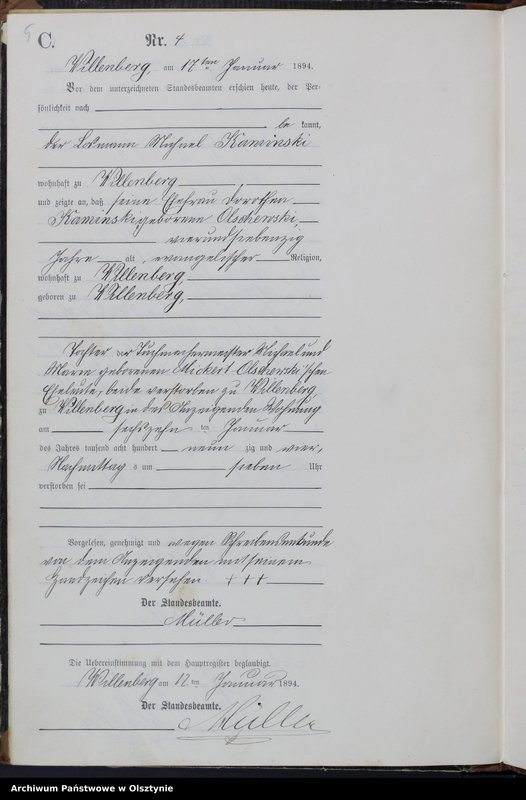 C.
Nr. 4.
Willenberg, am 17 ten Januar 1894.
Vor dem unterzeichneten Standesbeamten erschien heute, der Per-
sönlichkeit nach
be kannt,
der Losmann Michael Kaminski
wohnhaft zu Willenberg
und zeigte an, daß seine Ehefrau Dorothea
Kaminski geborene Olschewski
vierundsiebenzig
Jahre alt, evangelischer Religion,
wohnhaft zu Willenberg,
geboren zu Willenberg,
Tochter der Tuchmachermeister Michael und
Marie geborenen Olschewski'schen
Eheleute, beide verstorben zu Willenberg
zu Willenberg in des Anzeigenden Wohnung
am sechszehn ten Januar
des Jahres tausend acht hundert neun zig und vier,
Nachmittag s um sieben Uhr
verstorben sei
Vorgelesen, genehmigt und wegen Schreibensunkunde
von dem Anzeigenden mit seinem
Handzeichen versehen + + +
Der Standesbeamte.
Müller
Die Uebereinstimmung mit dem Hauptregister beglaubigt.
Willenberg am 17 ten Januar 1894.
Der Standesbeamte.
Müller
Archiwum Państwowe w Olsztynie